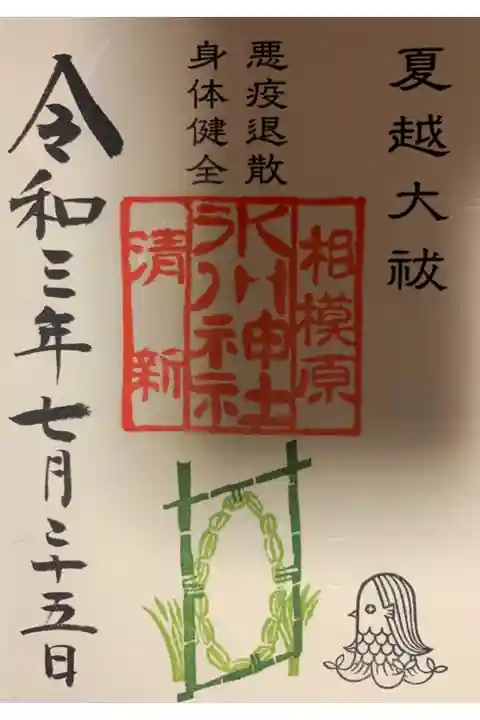 夏越大祓
悪疫退散
身体健全
相模原
氷川神社
清新
令和三年七月二十五日